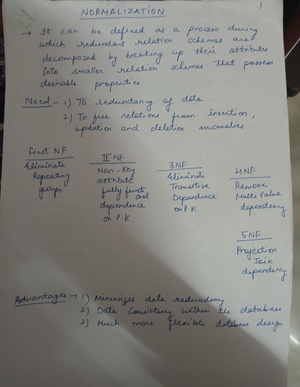 1
NORMALIZATION
→ It can be defined as a process during
which redundant relation schemas are
decomposed by breaking up their attributes
into smaller relation schemas that possess
desirable properties
Need - 1) To redundancy of data.
2) To free relations from insertion,
updation and deletion anomalies.
First NF
Eliminate
Repeating
groups
II NF
Non-Key
attribute
fully functional
dependence
on P.K
3NF
Eliminate
Transitive
Dependence
on P.K
4NF
Remove
Multi Value
dependency
5NF
Projection
Join
dependency
Advantages → 1) Minimizes data redundancy
2) Data Consistency within the database
3) Much more flexible database design